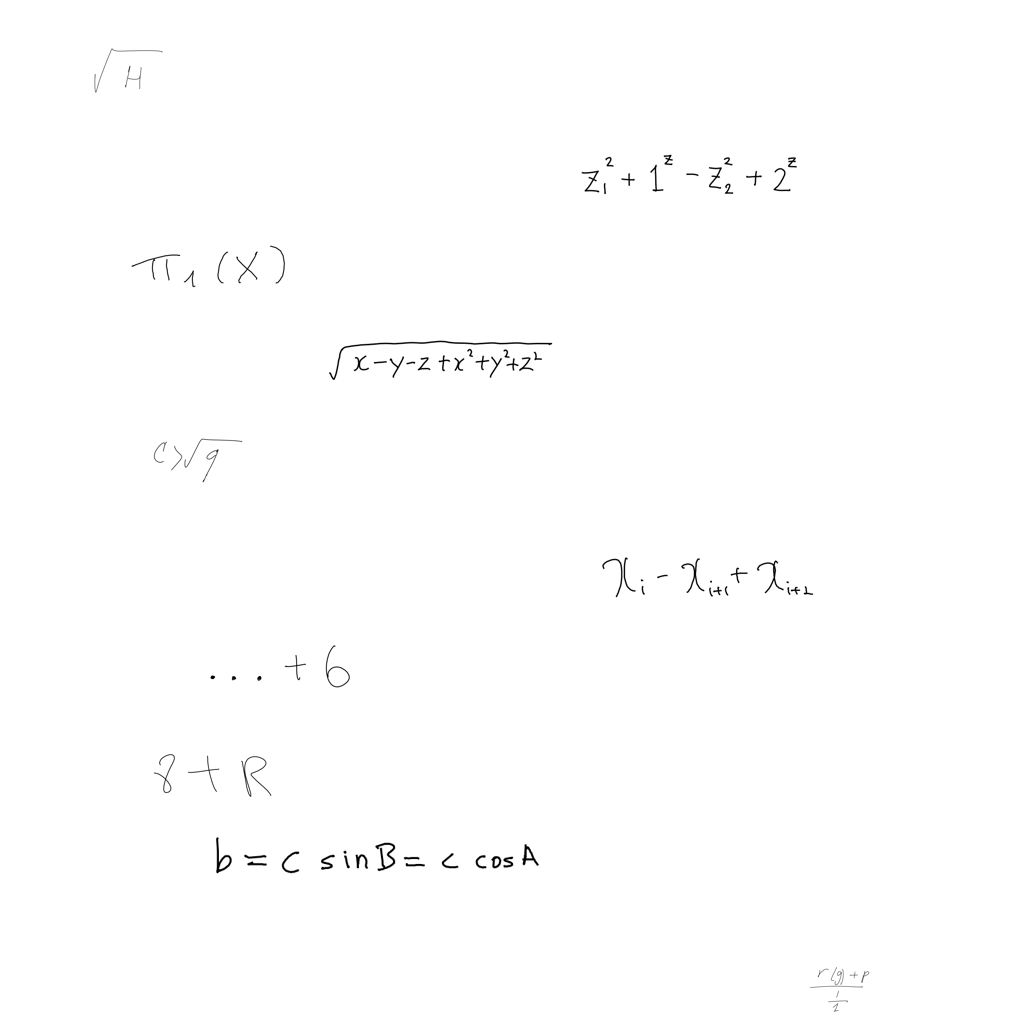 \sqrt{H}
z_1^2 + 1^z - z_2^2 + 2^z
\pi_1(X)
\sqrt{x-y-z+x^2+y^2+z^2}
c>\sqrt{q}
x_i - x_{i+1} + x_{i+2}
... + 6
8 + R
b = c sin B = c cos A
\frac{r(g)+p}{\frac{1}{2}}